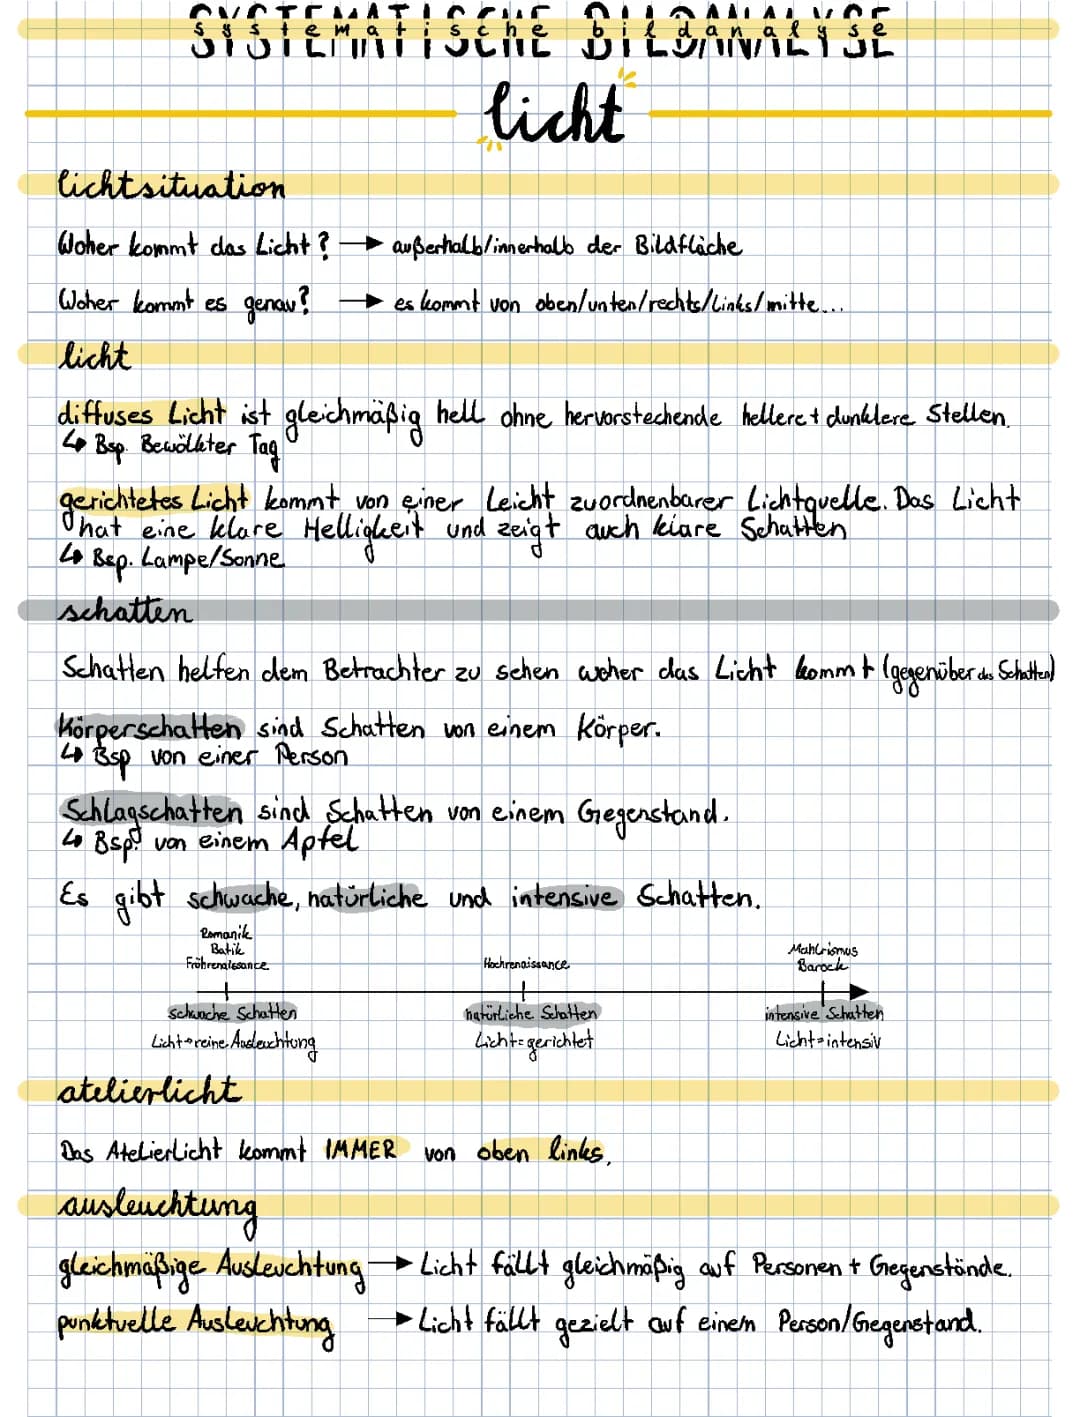 SYSTEMATISCHE BILDANALYSE
systematische bildanalyse
licht
lichtsituation
Woher kommt das Licht? → außerhalb/innerhalb der Bildfläche
Woher kommt es genau? → es kommt von oben/unten/rechts/links/mitte...
licht
diffuses Licht ist gleichmäßig hell ohne hervorstechende hellere + dunklere Stellen.
↳ Bsp. Bewölkter Tag
gerichtetes Licht kommt von einer leicht zuordnenbarer Lichtquelle. Das Licht
hat eine klare Helligkeit und zeigt auch klare Schatten
↳ Bsp. Lampe/Sonne
schatten
Schatten helfen dem Betrachter zu sehen woher das Licht kommt (gegenüber des Schatten)
Körperschatten sind Schatten von einem Körper.
↳ Bsp von einer Person
Schlagschatten sind Schatten von einem Gegenstand.
↳ Bsp. von einem Apfel
Es gibt schwache, natürliche und intensive Schatten.
Romanik
Batik
Frührenaissance
Hochrenaissance
Barock
schwache Schatten
natürliche Schatten
intensive Schatten
Licht→reine Ausleuchtung
Licht=gerichtet
Licht=intensiv
atelierlicht
Das Atelierlicht kommt IMMER von oben links.
ausleuchtung
gleichmäßige Ausleuchtung → Licht fällt gleichmäßig auf Personen + Gegenstände.
punktuelle Ausleuchtung → Licht fällt gezielt auf einem Person/Gegenstand.